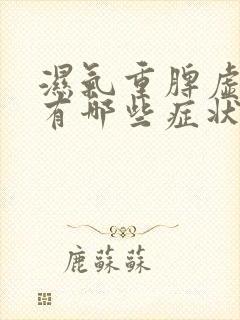 濕氣重脾虛
有哪些症狀
鹿蘇蘇